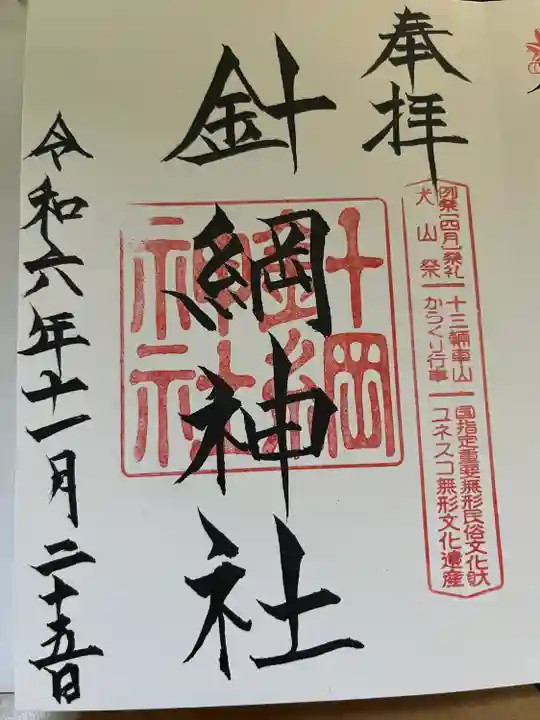 奉拝
例祭[四月]祭礼 十三輛車山 国指定重要無形民俗文化財
犬山祭 からくり行事 ユネスコ無形文化遺産
針綱神社
針綱神社
令和六年十一月二十五日